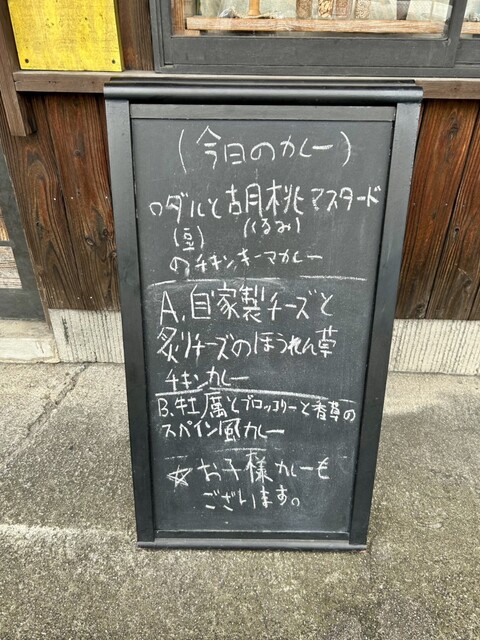 (今日のカレー)
○ダルと胡桃マスタード
(豆) (くるみ)
のチキンキーマカレー
A.自家製チーズと
炙りチーズのほうれん草
チキンカレー
B.牡蠣とブロッコリーと香草の
スペイン風カレー
☆お子様カレーも
ございます。